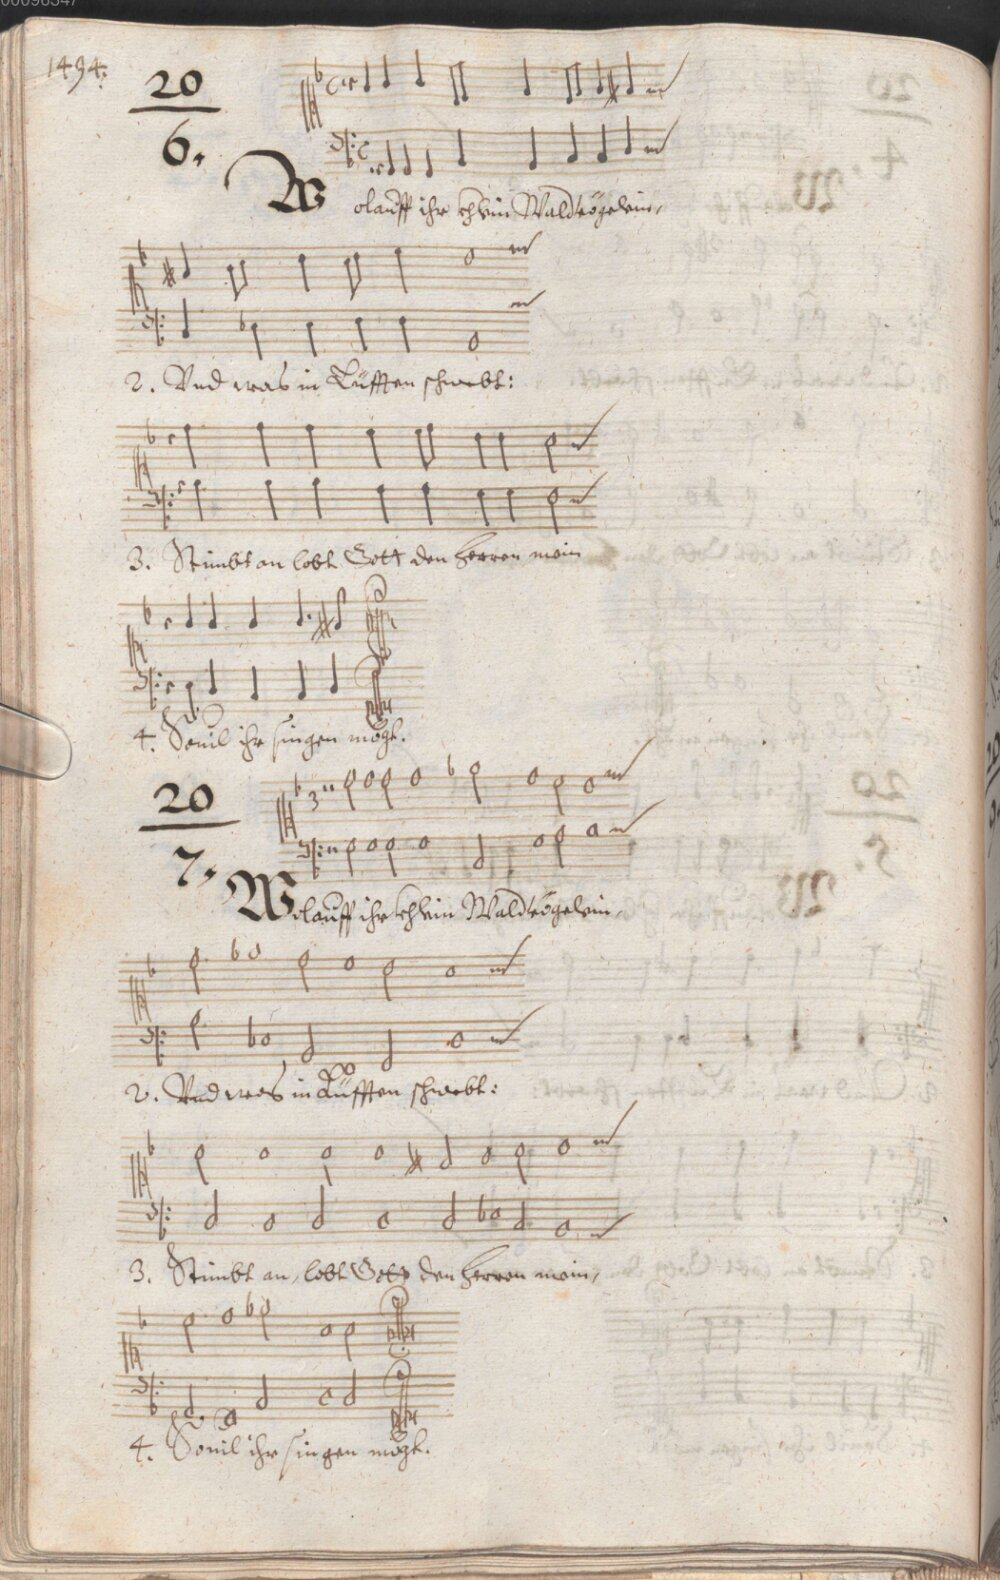 1494.
20
6.
Wolauff ihr klein Waldvögelein,
2. Vnd was in Lüfften schwebt:
3. Stimbt an lobt Gott den Herren mein
4. Souil ihr singen mögt.
20
7.
Wolauff ihr klein Waldvögelein,
2. Vnd was in Lüfften schwebt:
3. Stimbt an, lobt Gott den Herren mein,
4. Souil ihr singen mögt.